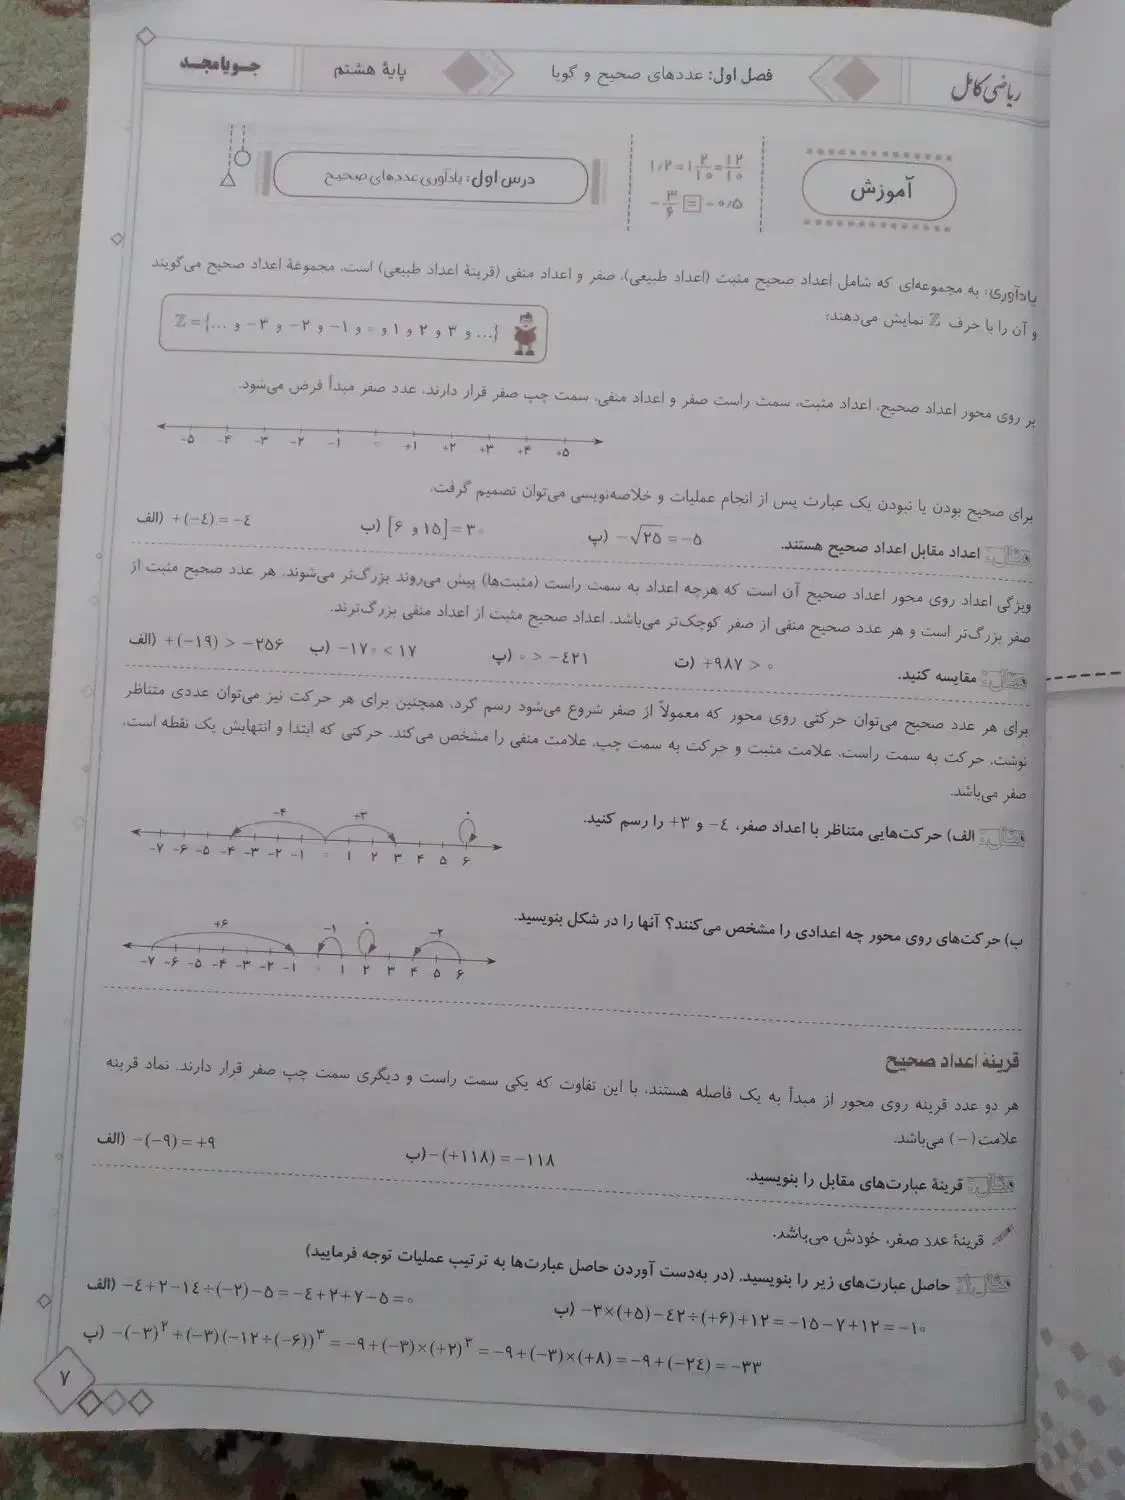 ریاضی کامل
فصل اول: عددهای صحیح و گویا
پایهٔ هشتم
جویا مجد
آموزش
۱/۲=۱ ۲/۱۰=۱۲/۱۰
-۳/۶ = -۰/۵
درس اول: یادآوری عددهای صحیح
یادآوری: به مجموعه‌ای که شامل اعداد صحیح مثبت (اعداد طبیعی)، صفر و اعداد منفی (قرینهٔ اعداد طبیعی) است، مجموعهٔ اعداد صحیح می‌گویند
و آن را با حرف ℤ نمایش می‌دهند:
ℤ={... و ۳- و ۲- و ۱- و ۰ و ۱ و ۲ و ۳ و ...}
بر روی محور اعداد صحیح، اعداد مثبت، سمت راست صفر و اعداد منفی، سمت چپ صفر قرار دارند. عدد صفر مبدأ فرض می‌شود.
-۵ -۴ -۳ -۲ -۱ ۰ +۱ +۲ +۳ +۴ +۵
برای صحیح بودن یا نبودن یک عبارت پس از انجام عملیات و خلاصه‌نویسی می‌توان تصمیم گرفت.
مثال: اعداد مقابل اعداد صحیح هستند.
الف) +(-۴)=-۴
ب) [۱۵ و ۶]=۳۰
پ) -√۲۵=-۵
ویژگی اعداد روی محور اعداد صحیح آن است که هرچه اعداد به سمت راست (مثبت‌ها) پیش می‌روند بزرگ‌تر می‌شوند. هر عدد صحیح مثبت از
صفر بزرگ‌تر است و هر عدد صحیح منفی از صفر کوچک‌تر می‌باشد. اعداد صحیح مثبت از اعداد منفی بزرگ‌ترند.
مثال: مقایسه کنید.
الف) +(-۱۹) > -۲۵۶
ب) -۱۷۰ < ۱۷
پ) ۰ > -۴۲۱
ت) +۹۸۷ > ۰
برای هر عدد صحیح می‌توان حرکتی روی محور که معمولاً از صفر شروع می‌شود رسم کرد. همچنین برای هر حرکت نیز می‌توان عددی متناظر
نوشت. حرکت به سمت راست، علامت مثبت و حرکت به سمت چپ، علامت منفی را مشخص می‌کند. حرکتی که ابتدا و انتهایش یک نقطه است،
صفر می‌باشد.
مثال: الف) حرکت‌هایی متناظر با اعداد صفر، ۴- و ۳+ را رسم کنید.
-۴ +۳ ۰
-۷ -۶ -۵ -۴ -۳ -۲ -۱ ۰ ۱ ۲ ۳ ۴ ۵ ۶
ب) حرکت‌های روی محور چه اعدادی را مشخص می‌کنند؟ آنها را در شکل بنویسید.
+۶ -۱ ۰ -۲
-۷ -۶ -۵ -۴ -۳ -۲ -۱ ۰ ۱ ۲ ۳ ۴ ۵ ۶
قرینهٔ اعداد صحیح
هر دو عدد قرینه روی محور از مبدأ به یک فاصله هستند. با این تفاوت که یکی سمت راست و دیگری سمت چپ صفر قرار دارند. نماد قرینه
علامت (-) می‌باشد.
مثال: قرینهٔ عبارت‌های مقابل را بنویسید.
الف) -(-۹)=+۹
ب) -(+۱۱۸)=-۱۱۸
قرینهٔ عدد صفر، خودش می‌باشد.
مثال: حاصل عبارت‌های زیر را بنویسید. (در به‌دست آوردن حاصل عبارت‌ها به ترتیب عملیات توجه فرمایید)
الف) -۴+۲-۱۴÷(-۲)-۵=-۴+۲+۷-۵=۰
ب) -۳×(+۵)-۴۲÷(+۶)+۱۲=-۱۵-۷+۱۲=-۱۰
پ) -(-۳)²+(-۳)(-۱۲÷(-۶))³=-۹+(-۳)×(+۲)³=-۹+(-۳)×(+۸)=-۹+(-۲۴)=-۳۳
۷